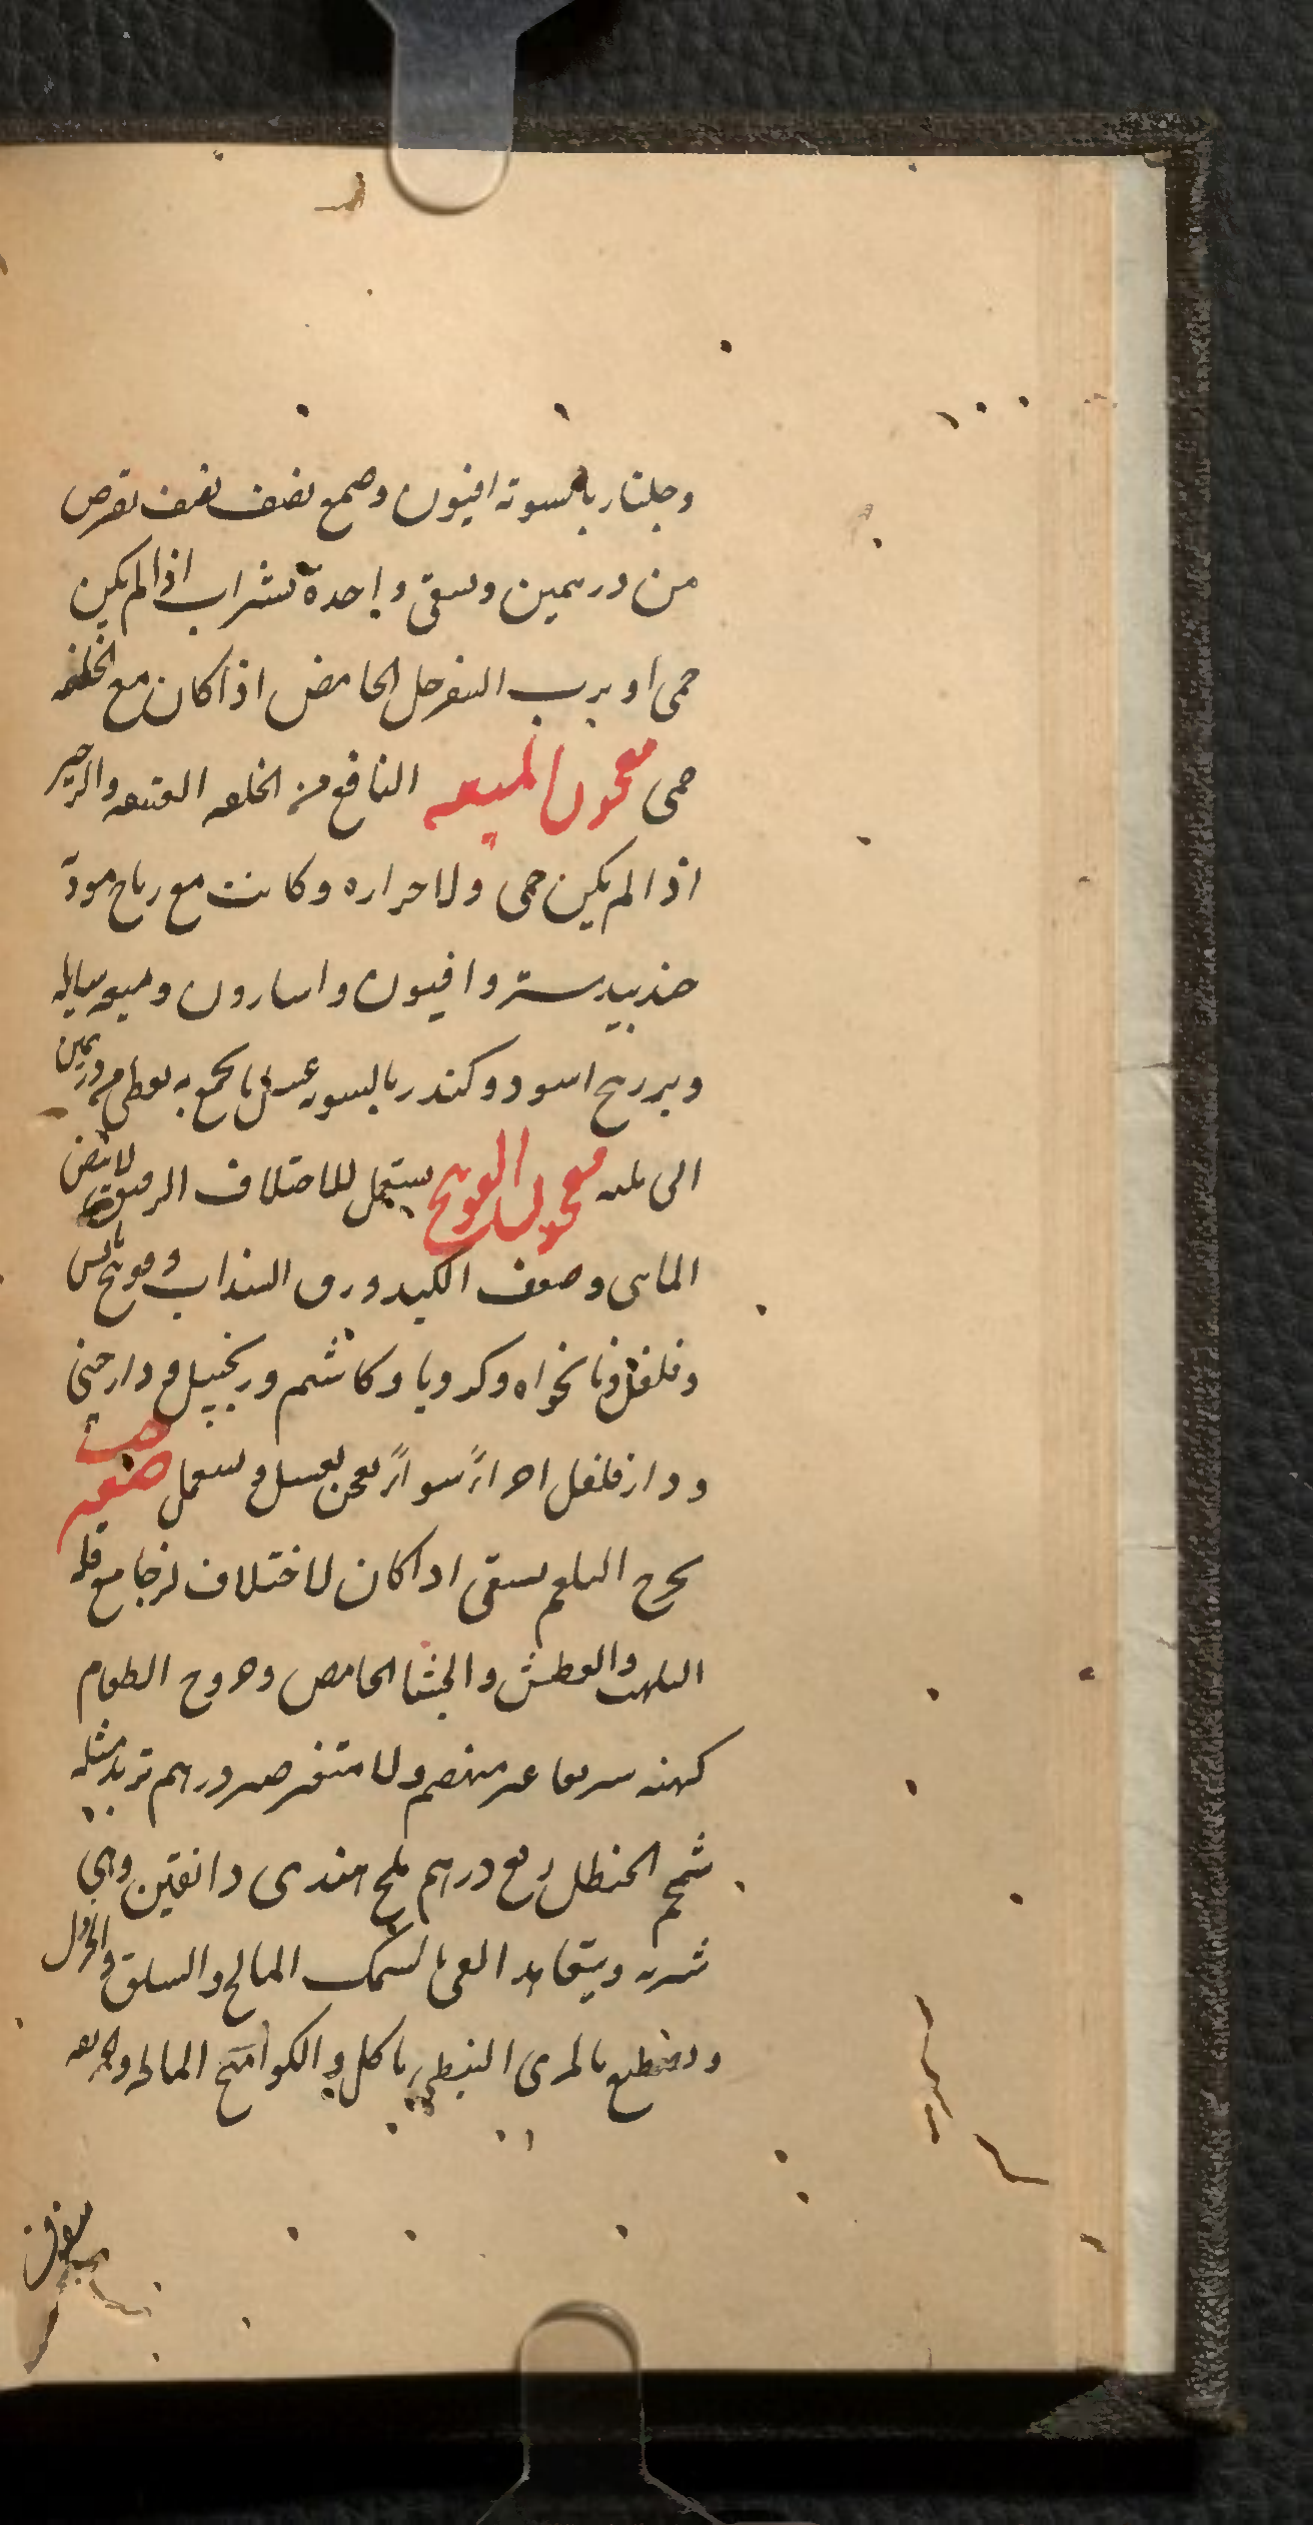 وجلنار بالسوية افيون وصمغ نصف نصف يقرص
من درهمين وسقى واحدة بشراب اذا لم يكن
حمى او برب السفرجل الحامض اذا كان مع الخلفه
حمى معجون الميعه النافع من الخلفه العتيقه والزحير
اذا لم يكن حمى ولا حراره وكانت مع رياح موذية
جندبيدستر وافيون واسارون وميعه سايله
وبزر بنج اسود وكندر بالسويه عسل ما يجمع به يعطى منه درهمين
الى ثلثه معجون الفوتنج يستعمل للاختلاف الرقيق الابيض
المائى وضعف الكبد ورق السداب وفوتنج يابس
وفلفل ونانخواه وكرويا وكاشم وزنجبيل ودارصينى
ودارفلفل اجزاءً سواءً يعجن بعسل ويستعمل صفة حب
يخرج البلغم يسقى اذا كان الاختلاف لزجا مع قلة
اللهيب والعطش والجشا الحامض وخروج الطعام
كهيئته سريعا غير منهضم ولا متغير صبر درهم تربد مثله
شحم الحنظل ربع درهم ملح هندى دانقين وهى
شربه ويتعاهد القى بالسمك المالح والسلق والخردل
ويصطبغ بالمرى النبطى ياكل والكواميخ المالحه والحريفه
سفوف